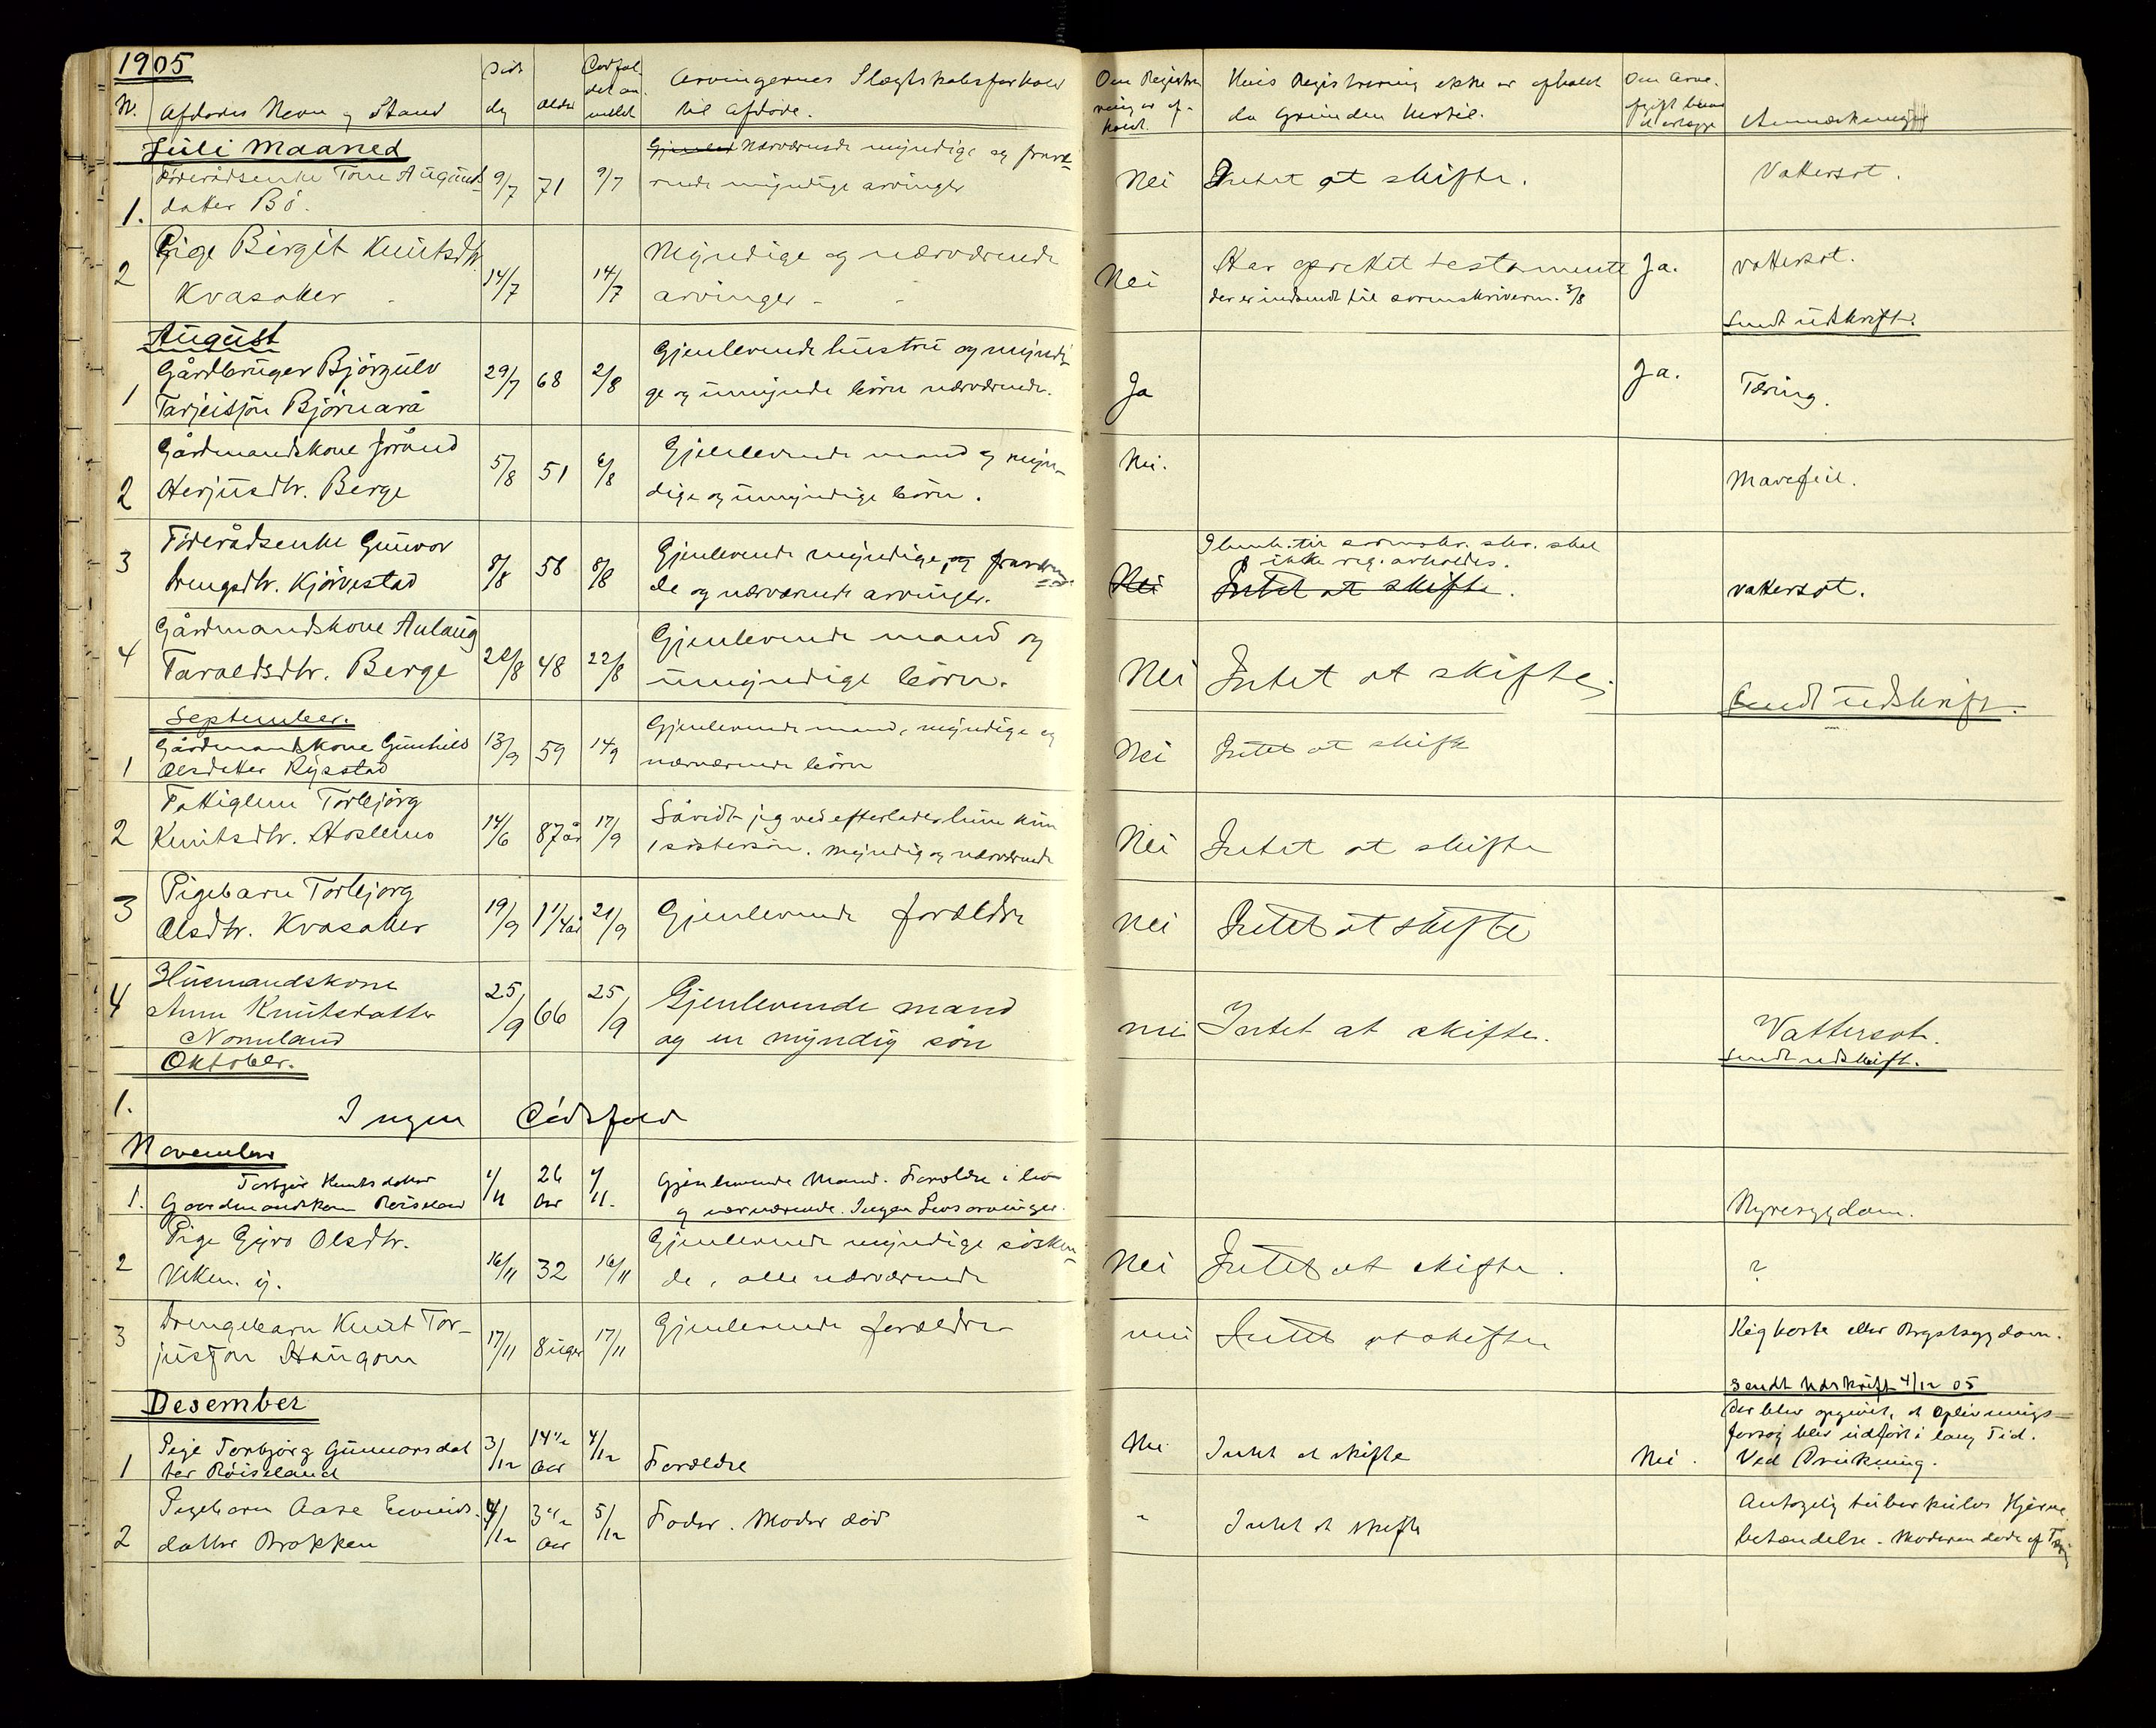 1905
Nr. Afdødes Navn og Stand Døds dag Alder Dødsfaldet anmeldt Arvingernes Slægtskabsforhold til Afdøde. Om Registrering er afholdt. Hvis Registrering ikke er afholdt da Grunden hertil. Om Arveafgift bliver at erlægge Anmerkninger
Juli Maaned
Föderådsenke Tone Augunds- 9/7 71 9/7 Gjenlev Nærværende myndige og fravæ- Nei Intet at skifte. Vattersot.
1. datter Bö. rende myndige arvinger
2 Pige Birgit Knutsdtr. 14/7 14/7 Myndige og nærværende Nei Har oprettet testamente Ja. vattersot.
Kvasaker arvinger - der er indsendt til sorenskriveren. 3/8
Sendt udskrift.
August
Gårdbruger Björgulv 29/7 68 2/8 Gjenlevende hustru og myndi- Ja Ja. Tæring.
1 Tarjeisjön Björnarå ge og umynde börn nærværende.
Gårdmandskone Jorånd 5/8 51 6/8 Gjenlevende mand og myn- Nei. Mavefeil.
2 Herjusdtr. Berge dige og umyndige börn.
3 Föderådsenke Gunvor 8/8 58 8/8 Gjenlevende myndige, og fraværen- Ihenh. til sorenskr. skr. skal
ikke reg. avholdes.
Drengsdtr. Kjörvestad de og nærværende arvinger. Nei Intet at skifte. vattersot.
Gårdmandskone Anlaug
4 Taraldsdtr. Berge 22/8 48 22/8 Gjenlevende mand og umyndige börn. Nei Intet at skifte. Sendt udskrift.
September.
Gårdmandskone Gunhild 13/9 59 14/9 Gjenlevende mand, myndige og Nei Intet at skifte
1 Olsdatter Rysstad nærværende börn
Fattiglem Torbjörg 14/6 87 år 17/9 Såvidt jeg ved efterlader hun kun Nei Intet at skifte
2 Knutsdtr. Hoslemo 1 söstersön. myndig og nærværende
3 Pigebarn Torbjorg 19/9 1 1/4 år 21/9 Gjenlevende forældre nei Intet at skifte
Olsdtr. Kvasaker
Husmandskone
4 Anne Knutsdatter 25/9 66 25/9 Gjenlevende mand nei Intet at skifte. Vattersot.
Nomeland og en myndig sön Sendt udskrift.
Oktober.
1. Ingen Dödsfald
November
Torbjør Knutsdatter 1/11 26 4/11. Gjenlevende Mand. Foreldre i liv
1. Gaardmandskone Røiseland Aar og nærværende. Ingen Livsarvinger. Nyresygdom.
Pige Gyro Olsdtr. 16/11 32 16/11 Gjenlevende myndige sösken- Nei Intet at skifte. ?
2 Viken. ij. de, alle nærværende
3 Drengebarn Knut Tor- 17/11 8 uger 17/11 Gjenlevende forældre nei Intet at skifte Kighoste eller Brystsygdom.
jusjon Haugom
Sendt Udskrift 4/12 05
Desember
Der blev opgivet, at Oplivnings-
forsøg blev udført i lang Tid.
1 Pige Torbjørg Gunnarsdat 3/12 14 1/2 Aar 4/12 Foreldre Nei Intet at skifte Nei. Ved Drukning.
ter Røiseland
Pigebarn Aase Eivinds- 4/12 3 1/2 Aar 5/12 Fader. Moder død " Intet at skifte Antagelig tuberkuløs Hjerne
2 datter Brokken betændelse. Moderen døde af Tæring